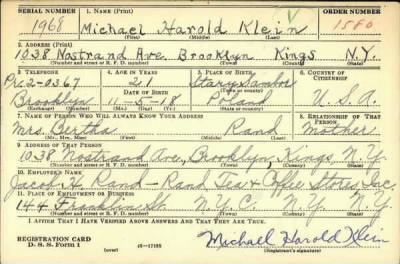 SERIAL NUMBER 1. NAME (Print) ORDER NUMBER
1968 Michael Harold Klein 1580
(First) (Middle) (Last)
2. ADDRESS (Print)
1038 Nostrand Ave. Brooklyn Kings N.Y.
(Number and street or R. F. D. number) (Town) (County) (State)
3. TELEPHONE 4. AGE IN YEARS 5. PLACE OF BIRTH 6. COUNTRY OF CITIZENSHIP
21 Stary Sambor
Pre 2-0367 DATE OF BIRTH
Brooklyn 11-5-18 Poland U.S.A.
(Exchange) (Number) (Mo.) (Day) (Yr.)
7. NAME OF PERSON WHO WILL ALWAYS KNOW YOUR ADDRESS 8. RELATIONSHIP OF THAT PERSON
Mrs. Bertha Rand Mother
(Mr., Mrs., Miss) (First) (Middle) (Last)
9. ADDRESS OF THAT PERSON
1038 Nostrand Ave, Brooklyn, Kings, N.Y.
(Number and street or R. F. D. number) (Town) (County) (State)
10. EMPLOYER'S NAME
Jacob H. Rand - Rand Tea & Coffee Stores, Inc.
11. PLACE OF EMPLOYMENT OR BUSINESS
144 Franklin St. N.Y.C. N.Y. N.Y.
(Number and street or R. F. D. number) (Town) (County) (State)
I AFFIRM THAT I HAVE VERIFIED ABOVE ANSWERS AND THAT THEY ARE TRUE.
REGISTRATION CARD
D. S. S. Form 1 (over) Michael Harold Klein
(Registrant's signature)